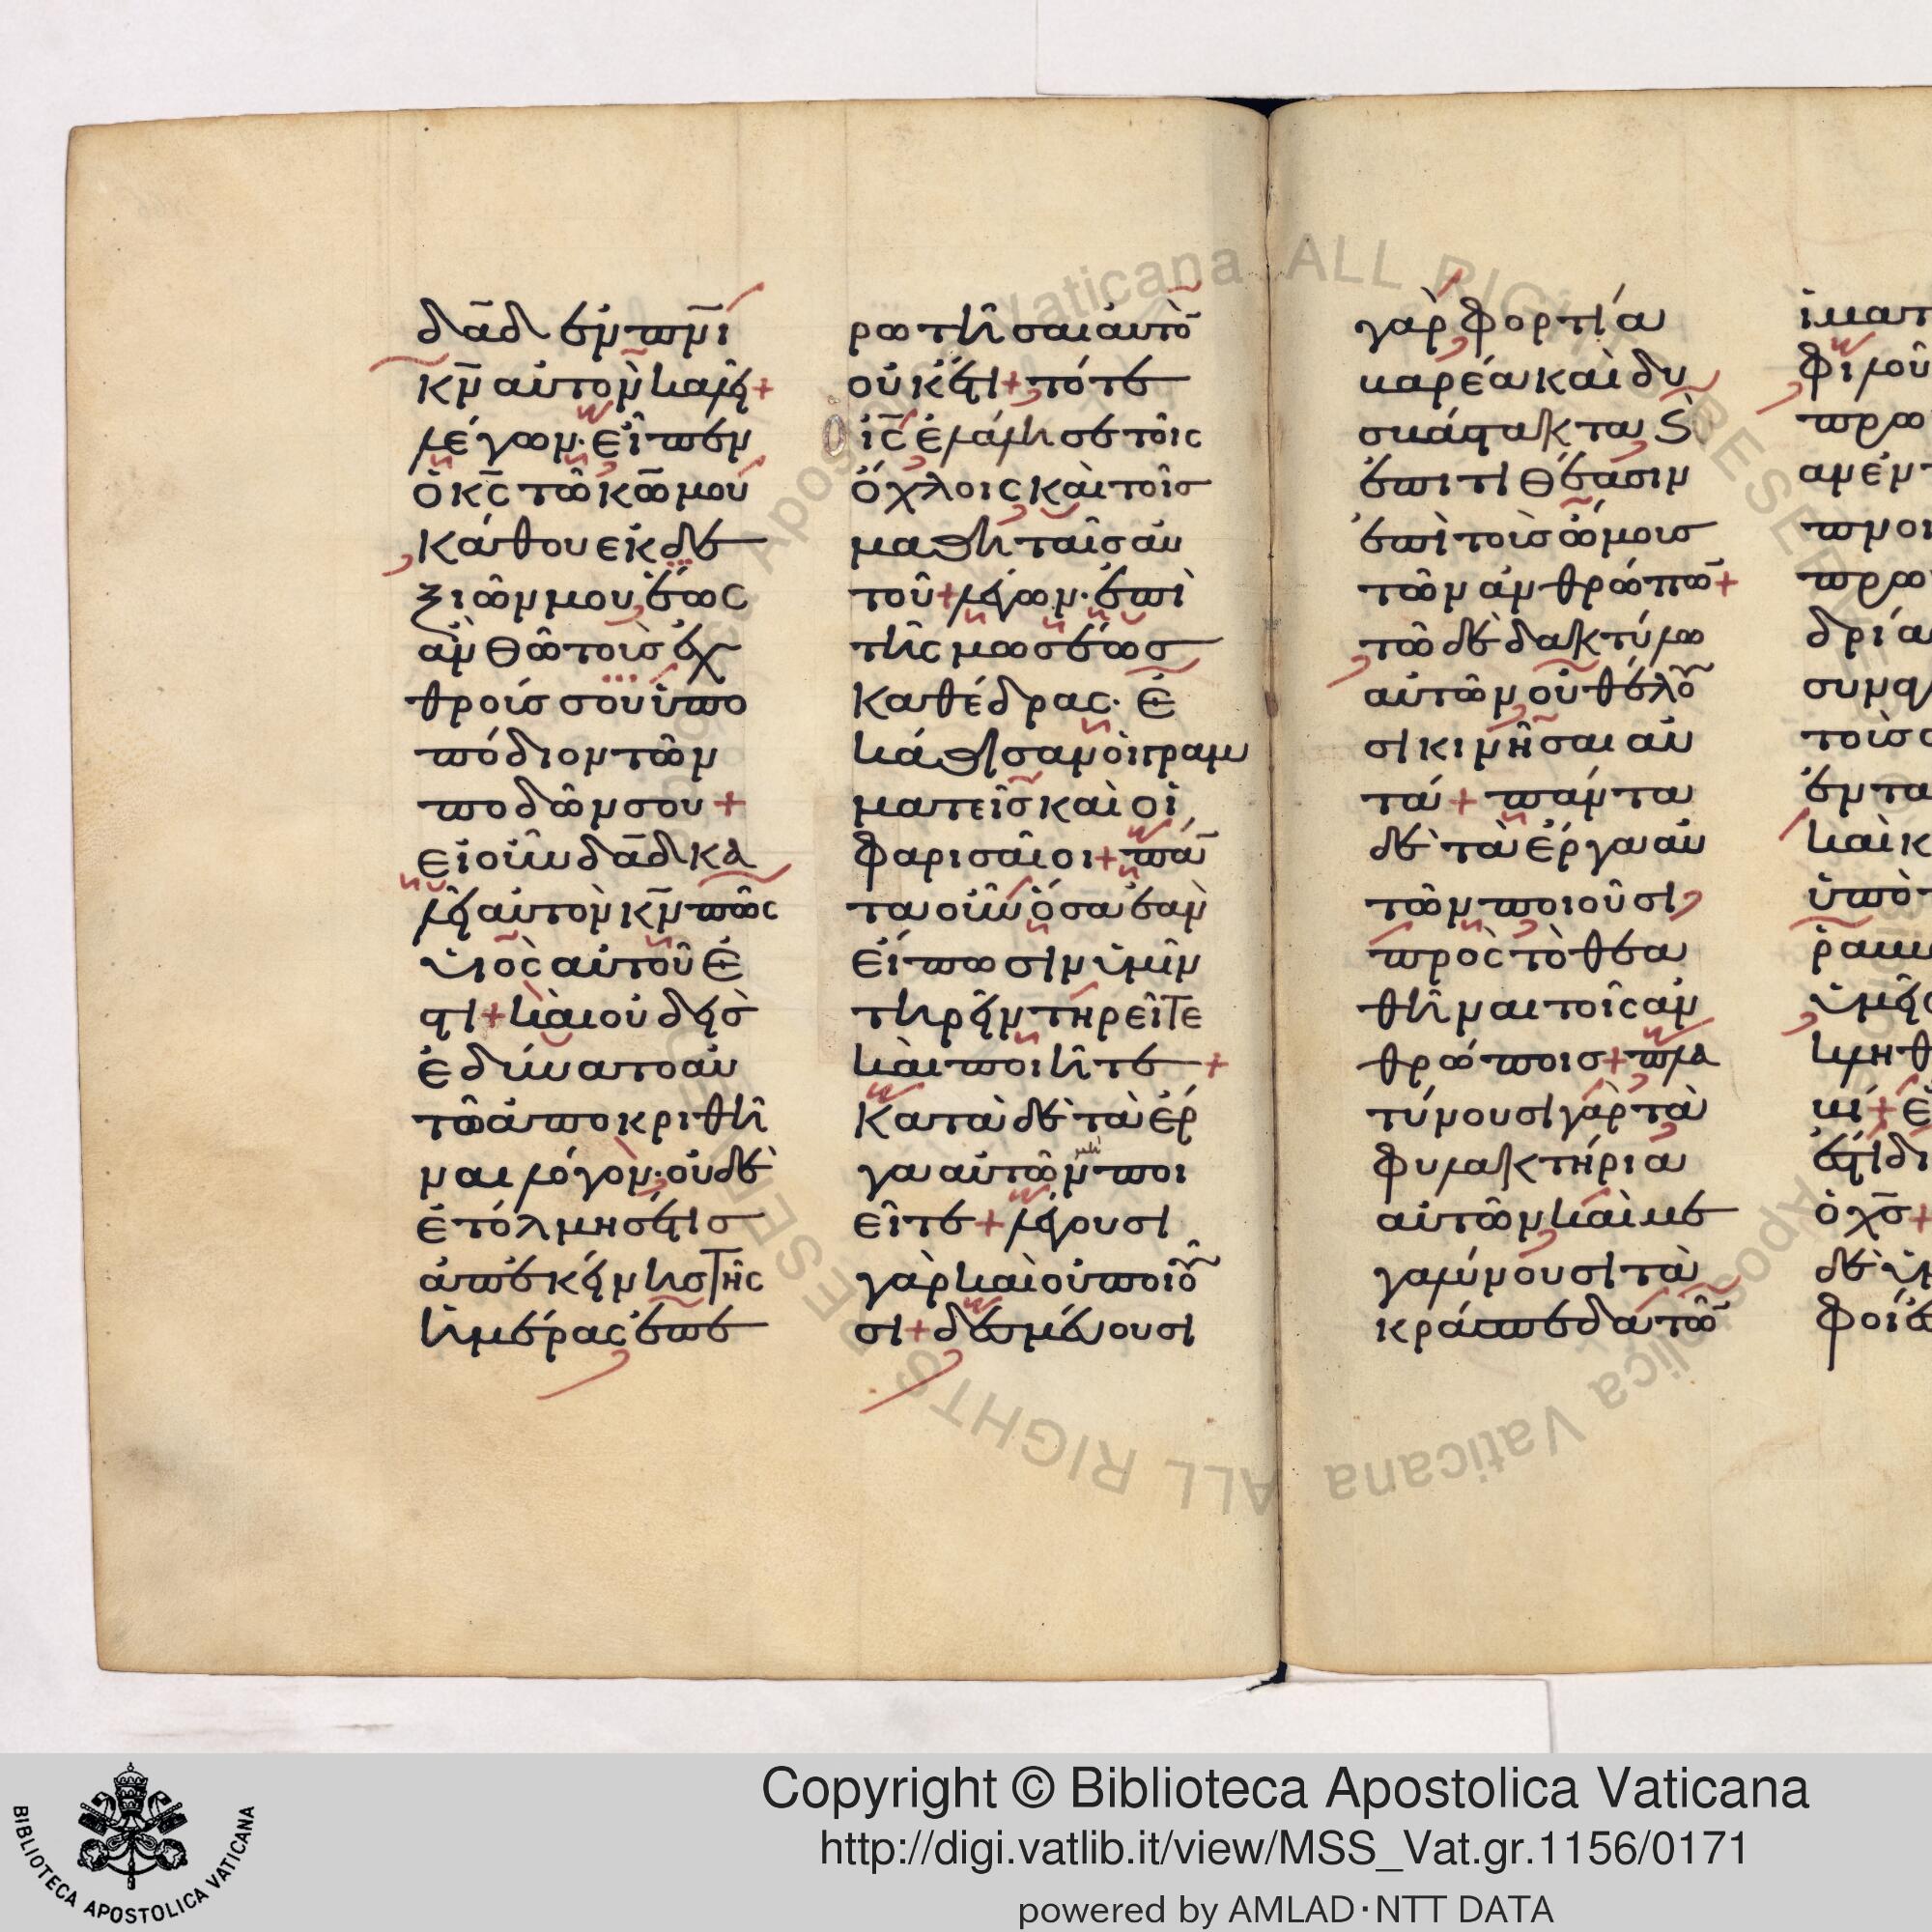 δα̅δ ἐν πν̅ι
κν̅ αὐτὸν καλεῖ+
λέγων· εἶπεν
ὁ κς̅ τῶ κω̅ μου
κάθου ἐκ δε
ξιῶν μου, ἕως
ἂν θῶ τοὺς ἐχ
θρούς σου ὑπο
πόδιον τῶν
ποδῶν σου+
εἰ οὖν δα̅δ κα
λεῖ αὐτὸν κν̅ πῶς
υἱὸς αὐτοῦ ἐ
στι+ καὶ οὐδεὶσ
ἐδύνατο αὐ
τῶ ἀποκριθῆ
ναι λόγον· οὐδὲ
ἐτόλμησέ τις
ἀπ' ἐκείνης τῆς
ἡμέρας ἐπε
ρωτῆσαι αὐτὸ̅
οὐκέτι+ τότε
ὁ ις̅ ἐλάλησε τοῖς
ὄχλοις καὶ τοῖσ
μαθηταῖσ αὐ
τοῦ+ λέγων· ἐπὶ
τῆς μωσέωσ
καθέδρας· ἐ
κάθισαν οἱ γραμ
ματεῖσ καὶ οἱ
φαρισαῖοι+ πά̅
τα οὖν ὅσα ἐὰν
εἴπωσιν ὑμῖν
τηρεῖν τηρεῖτε
καὶ ποιῆτε+
κατὰ δὲ τὰ ἔρ
γα αὐτῶν μὴ ποι
εῖτε+ λέγουσι
γὰρ καὶ οὐ ποιοῦ
σι+ δεσμεύουσι
γὰρ φορτία
βαρέα καὶ δυ
σβάστακτα ϗ
ἐπιτιθέασιν
ἐπὶ τοὺσ ὤμουσ
τῶν ἀνθρώπω̅+
τῶ δὲ δακτύλω
αὐτῶν οὐ θέλου
σι κινῆσαι αὐ
τά+ πάντα
δὲ τὰ ἔργα αὐ
τῶν ποιοῦσι
πρὸς τὸ θεα
θῆναι τοῖς ἀν
θρώποισ+ πλα
τύνουσι γὰρ τὰ
φυλακτήρια
αὐτῶν καὶ με
γαλύνουσι τὰ
κράσπεδα τῶ̅
ἱματ
φιλοῦ
πρω
πρω
δρία
συναγ
τοὺσ ἀ
ἐν τα
καὶ κ
ὑπὸ τ
ῥαββ
ὑμεῖς
κληθ
Copyright © Biblioteca Apostolica Vaticana
http://digi.vatlib.it/view/MSS_Vat.gr.1156/0171
powered by AMLAD·NTT DATA
BIBLIOTECA APOSTOLICA VATICANA